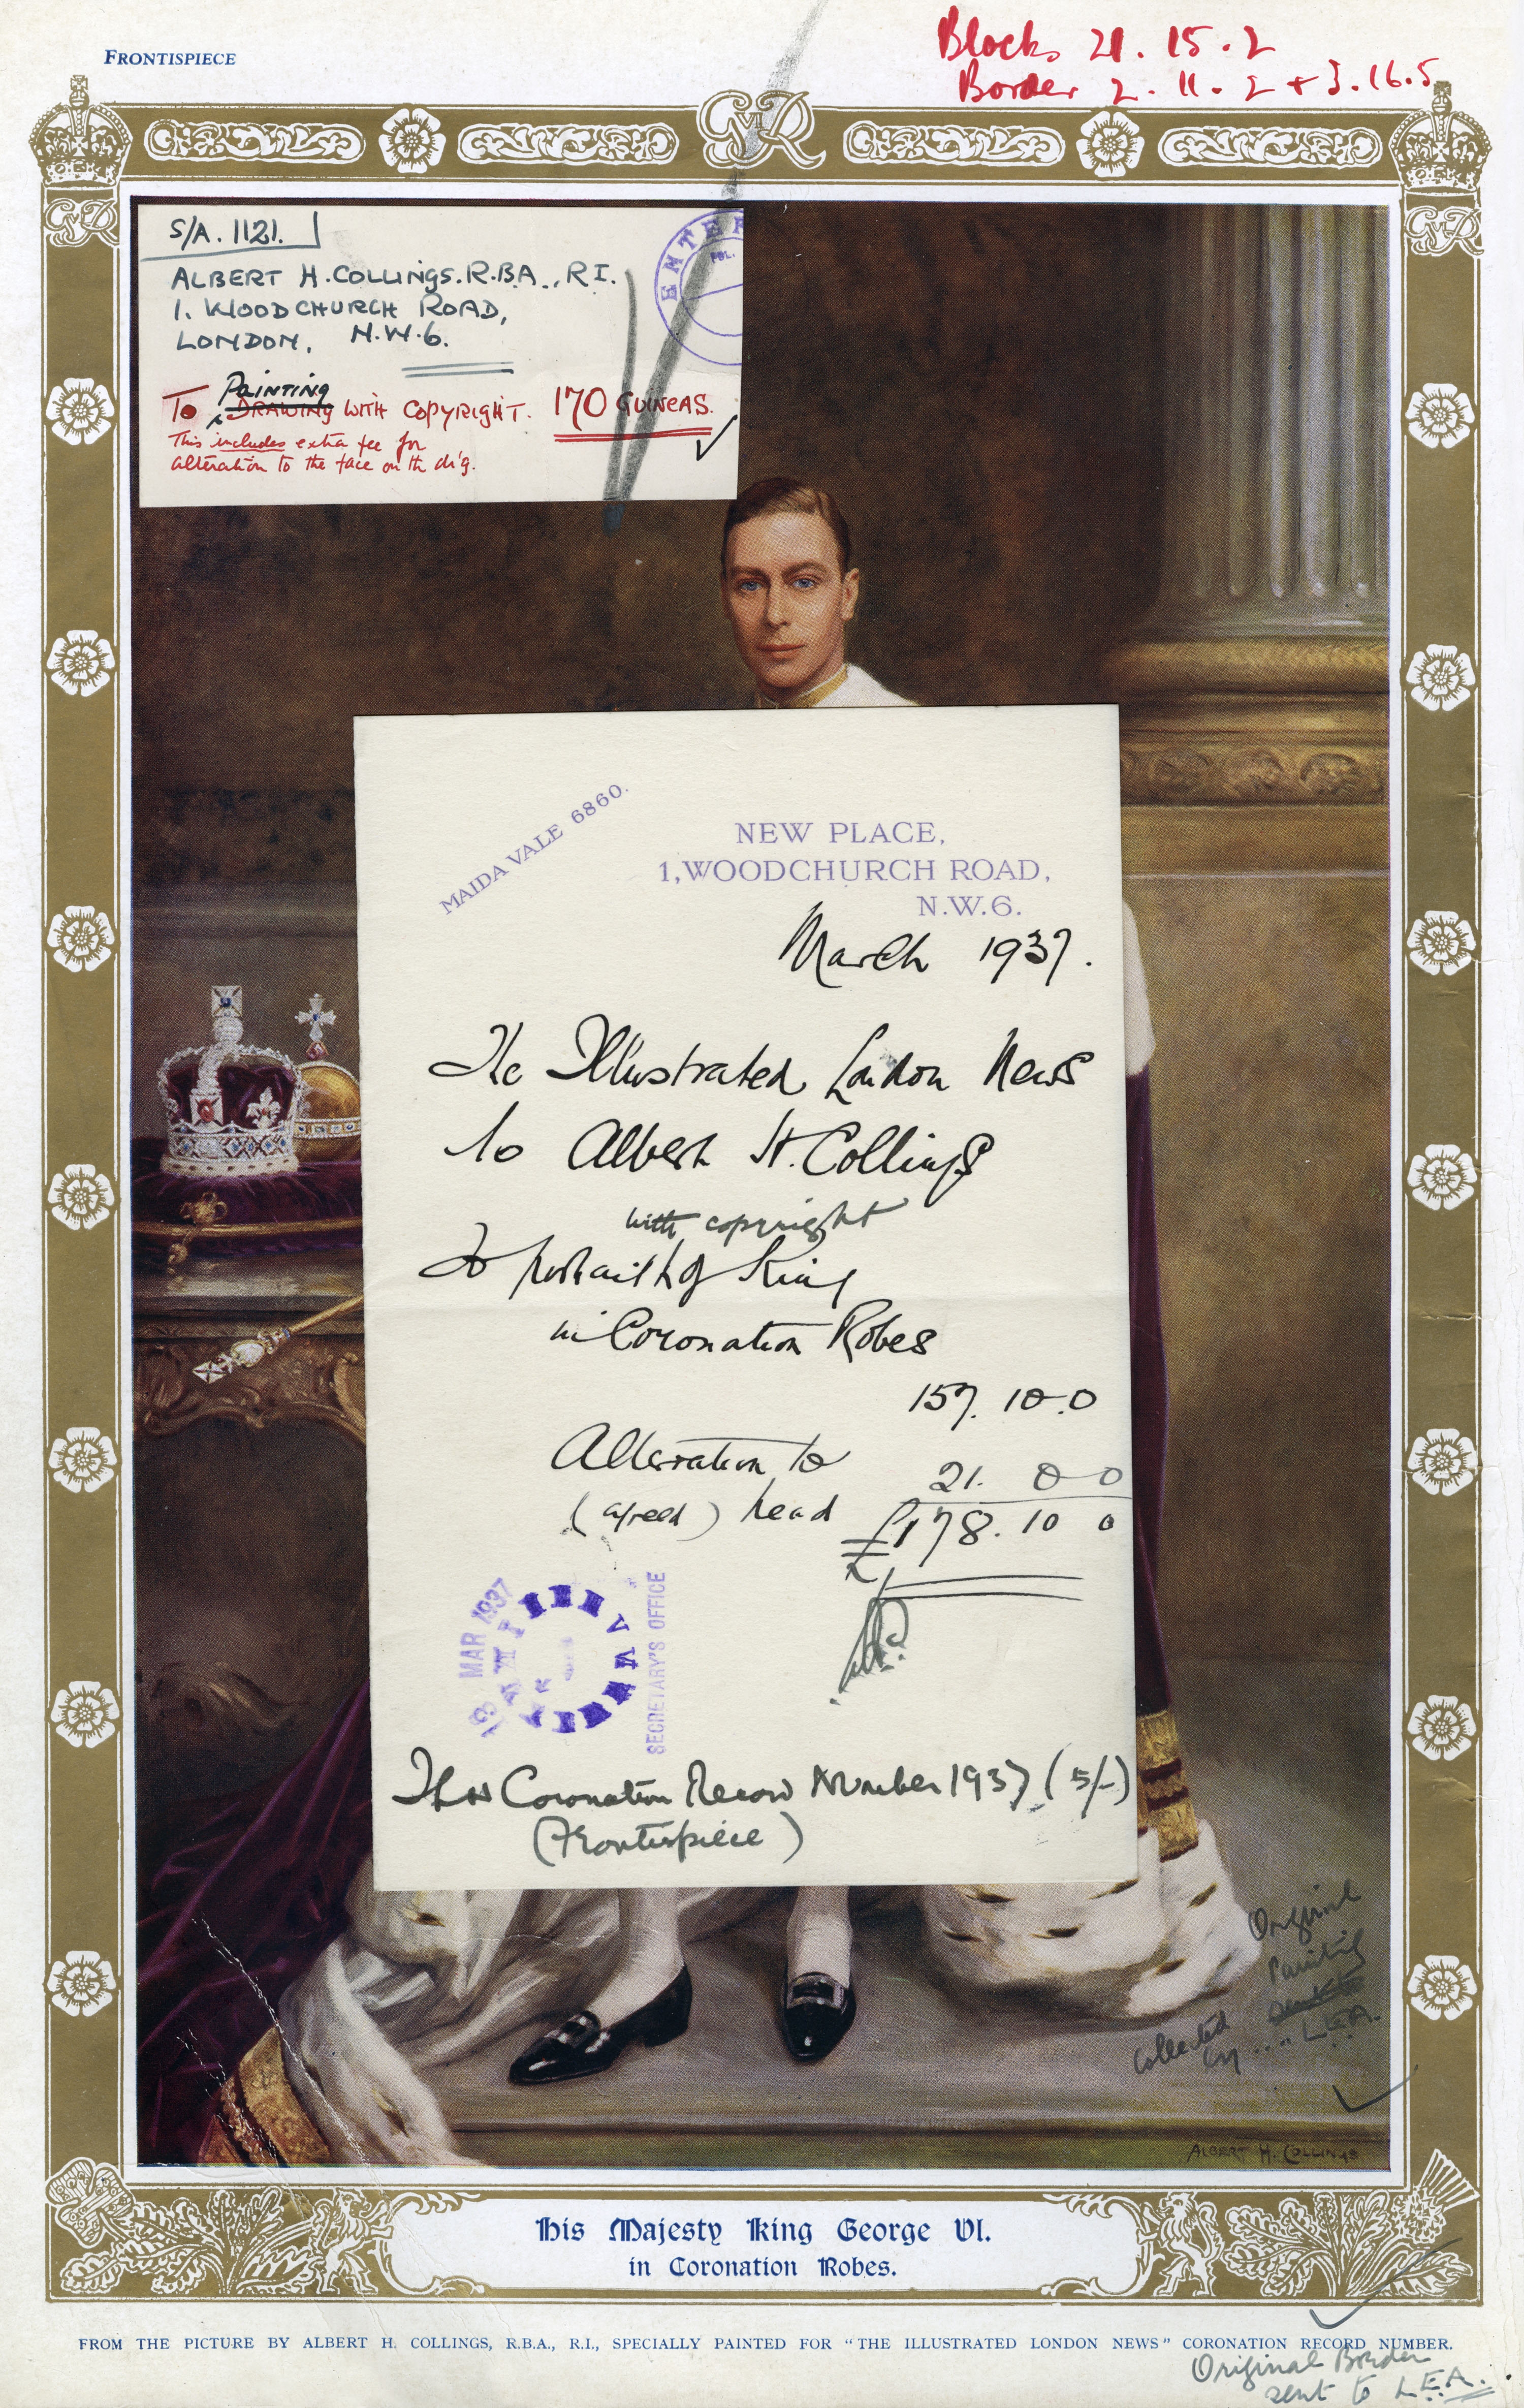 FRONTISPIECE
Blocks 21. 15. 2
Border 2. 11. 2 + 3. 16. 5
GviR
GviR
GviR
S/A. 1121.
ALBERT H. COLLINGS. R.B.A., R.I.
1. WOODCHURCH ROAD,
LONDON, N.W.6.
PAINTING
TO DRAWING WITH COPYRIGHT. 170 GUINEAS.
This includes extra fee for
alteration to the face on the dr'g.
MAIDA VALE 6860.
NEW PLACE,
1, WOODCHURCH ROAD,
N.W.6.
March 1937.
The Illustrated London News
to Albert H. Collings
with copyright
To portrait of King
in Coronation Robes
157. 10. 0
Alteration to 21. 0 0
(agreed) head £178. 10 0
MAR 1937
SECRETARY'S OFFICE
Coronation Record Number 1937 (5/-)
(Frontispiece)
Original
Painting
sent to
Collected by .... L.E.A.
ALBERT H. COLLINGS
His Majesty King George VI.
in Coronation Robes.
FROM THE PICTURE BY ALBERT H. COLLINGS, R.B.A., R.I., SPECIALLY PAINTED FOR "THE ILLUSTRATED LONDON NEWS" CORONATION RECORD NUMBER.
Original Border
sent to L.E.A.